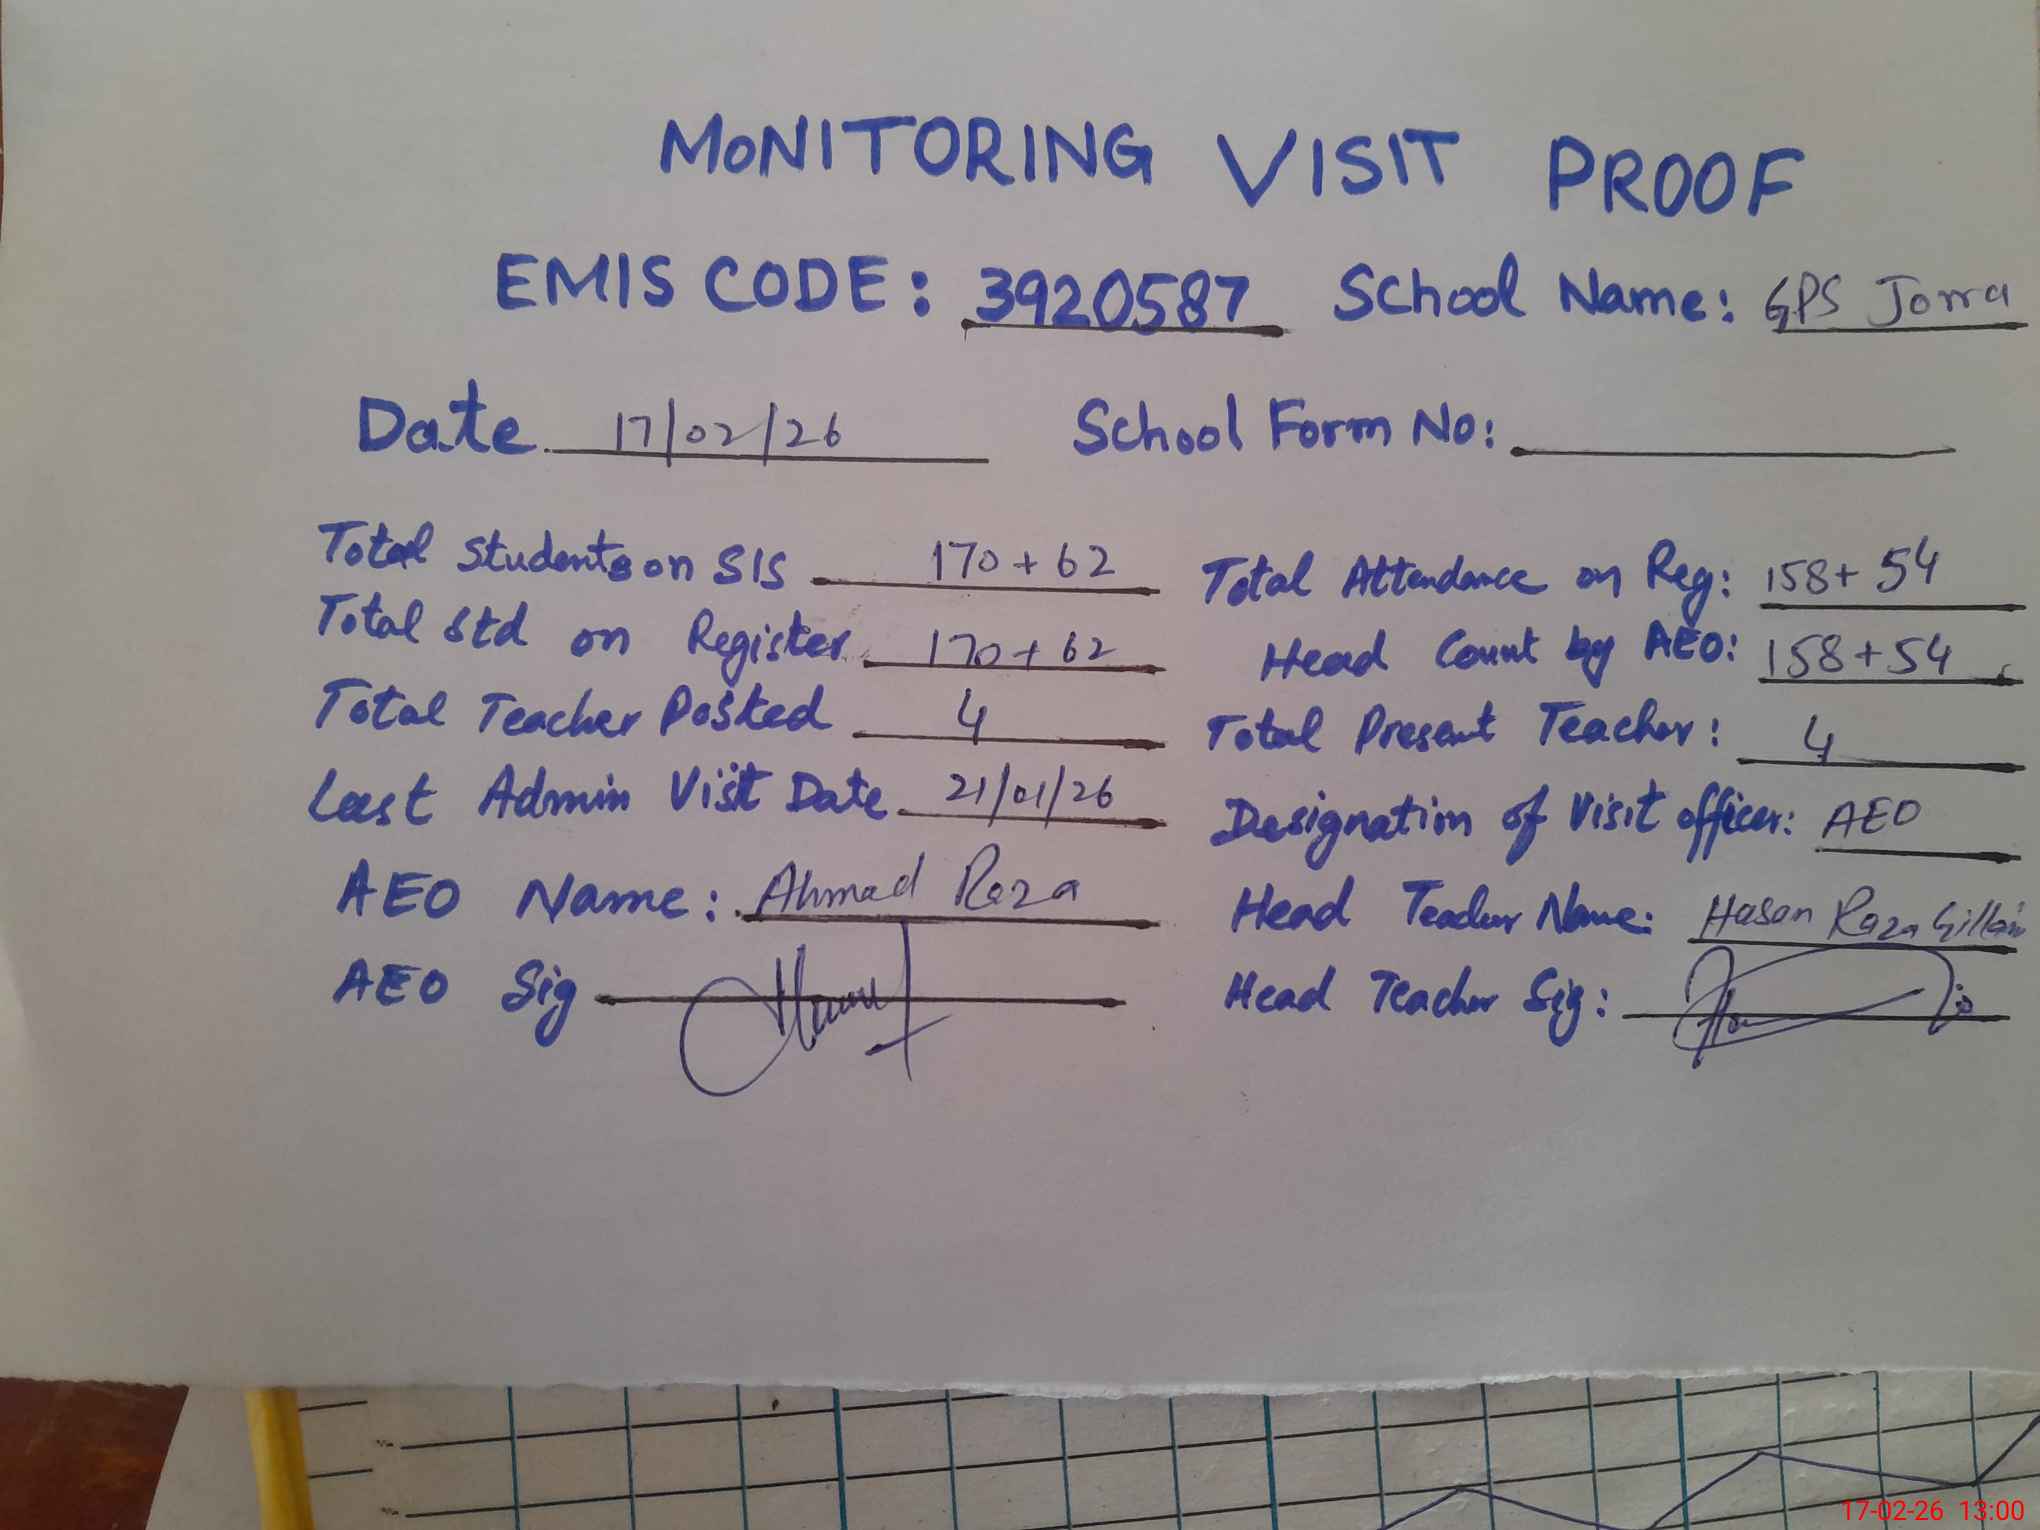 MONITORING VISIT PROOF
EMIS CODE: 3920587 School Name: GPS Jorra
Date 17/02/26 School Form No:
Total Students on SIS 170+62 Total Attendance on Reg: 158+54
Total Std on Register 170+62 Head Count by AEO: 158+54
Total Teacher Posted 4 Total Present Teacher: 4
Last Admin Visit Date 21/01/26 Designation of Visit officer: AEO
AEO Name: Ahmad Raza Head Teacher Name: Hasan Raza
AEO Sig Head Teacher Sig:
17-02-26 13:00